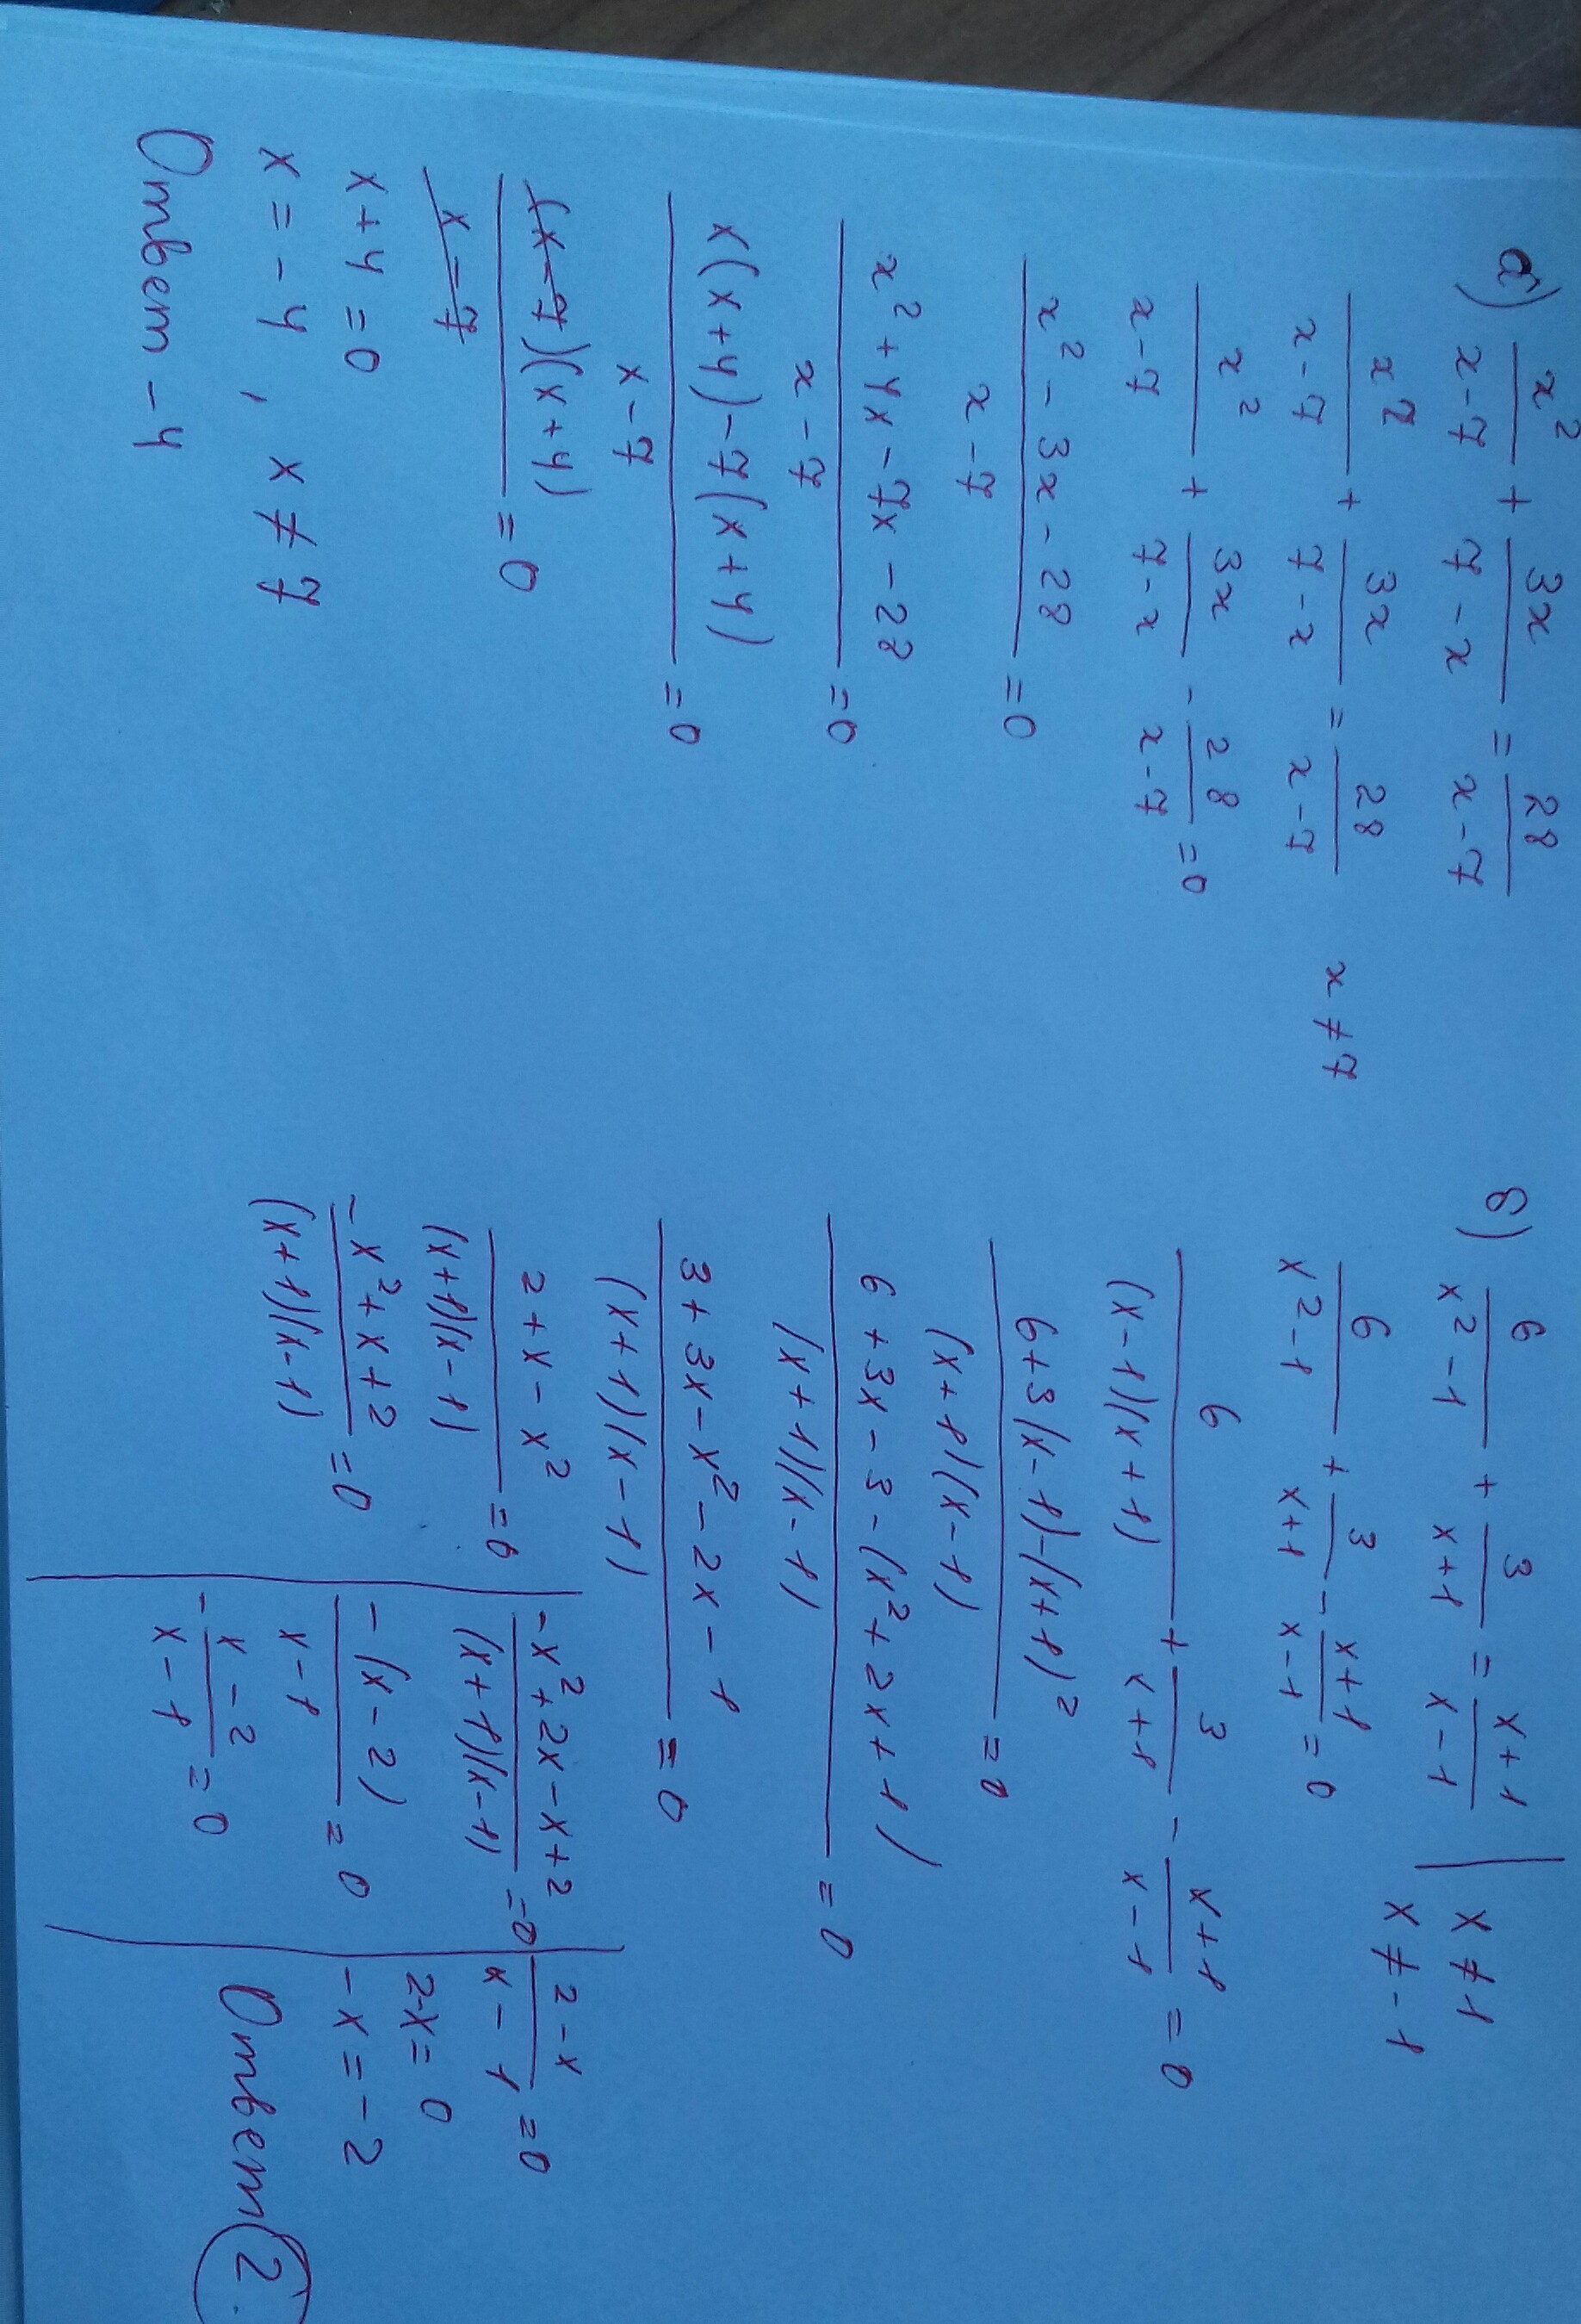 а) x²/(x-7) + 3x/(7-x) = 28/(x-7)
x²/(x-7) + 3x/(7-x) = 28/(x-7)  x ≠ 7
x²/(x-7) + 3x/(7-x) - 28/(x-7) = 0
(x² - 3x - 28)/(x-7) = 0
(x² + 4x - 7x - 28)/(x-7) = 0
(x(x+4) - 7(x+4))/(x-7) = 0
(x-7)(x+4)/(x-7) = 0
x+4 = 0
x = -4 , x ≠ 7
Ответ -4
б) 6/(x²-1) + 3/(x+1) = (x+1)/(x-1) | x ≠ 1
x ≠ -1
6/(x²-1) + 3/(x+1) - (x+1)/(x-1) = 0
6/((x-1)(x+1)) + 3/(x+1) - (x+1)/(x-1) = 0
(6+3(x-1)-(x+1)²)/((x+1)(x-1)) = 0
(6+3x-3-(x²+2x+1))/((x+1)(x-1)) = 0
(3+3x-x²-2x-1)/((x+1)(x-1)) = 0
(2+x-x²)/((x+1)(x-1)) = 0
(-x²+x+2)/((x+1)(x-1)) = 0
(-x²+2x-x+2)/((x+1)(x-1)) = 0
-(x-2)/(x-1) = 0
-(x-2)/(x-1) = 0
(2-x)/(x-1) = 0
2-x = 0
-x = -2
Ответ 2.